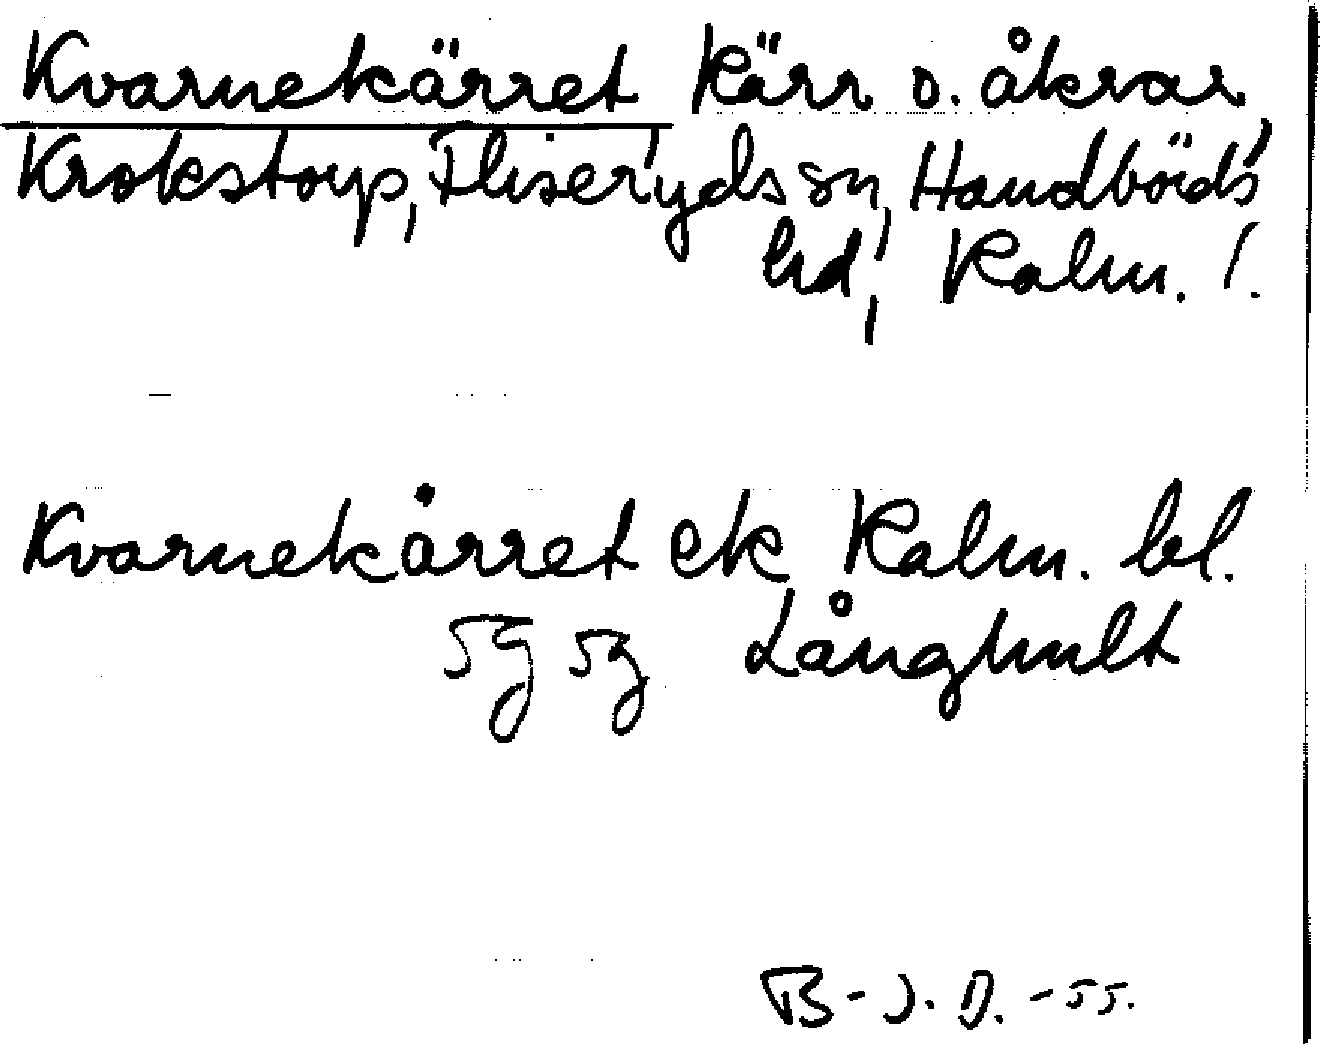 Kvarnekärret, Kärr o. åkrar,
Krokstorp, Fliseryds sn, Handbörds
hd, Kalm. l.
Kvarnekärret ek Kalm. bl.
5g 5g Långhult
B-J.D. -55.